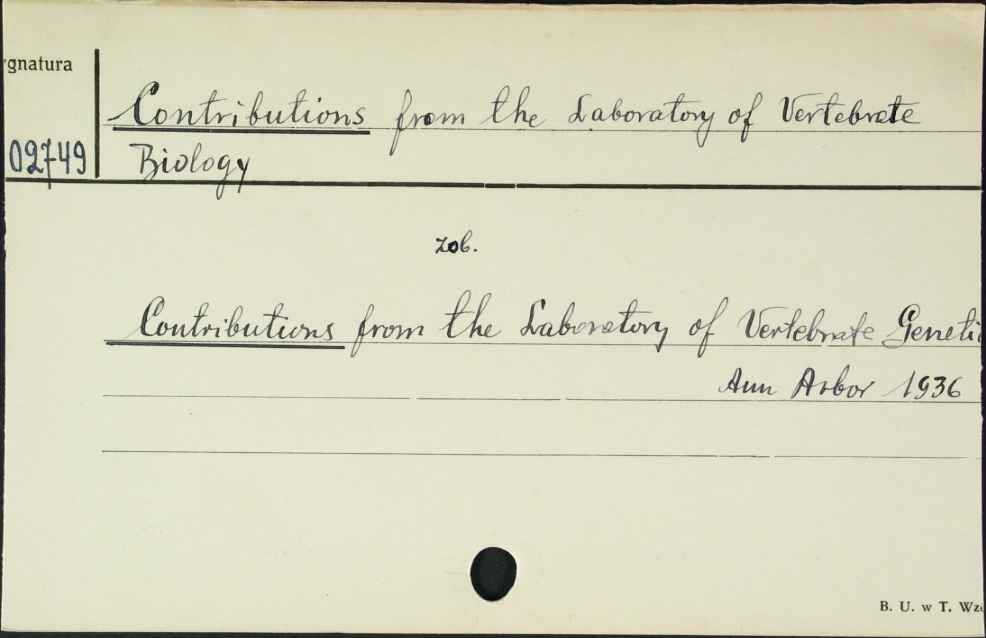 ygnatura
Contributions from the Laboratory of Vertebrate
02749
Biology
zob.
Contributions from the Laboratory of Vertebrate Geneti
Ann Arbor 1936
B. U. w T. Wz